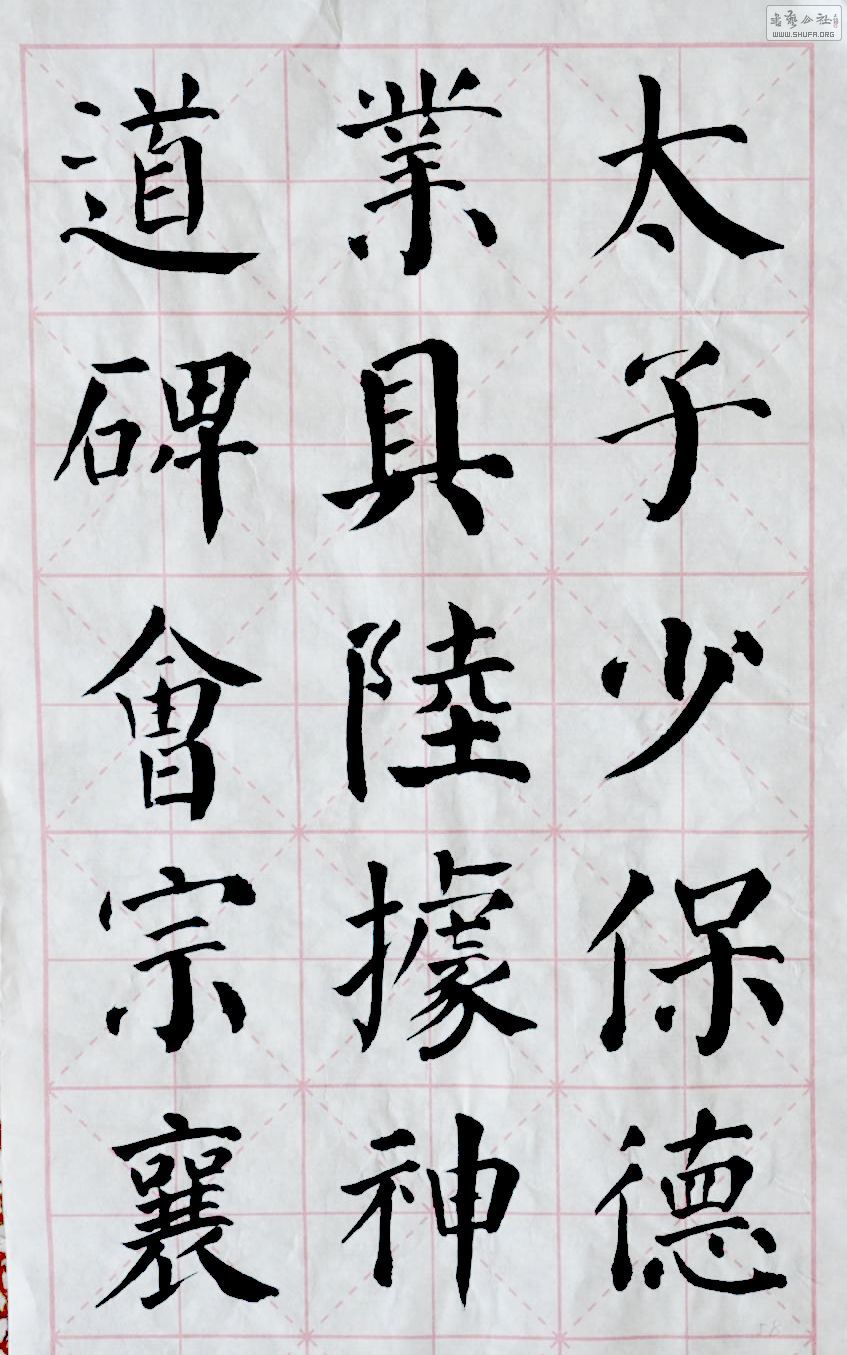 太子少保德
業具陸據神
道碑會宗襄
WWW.SHUFA.ORG